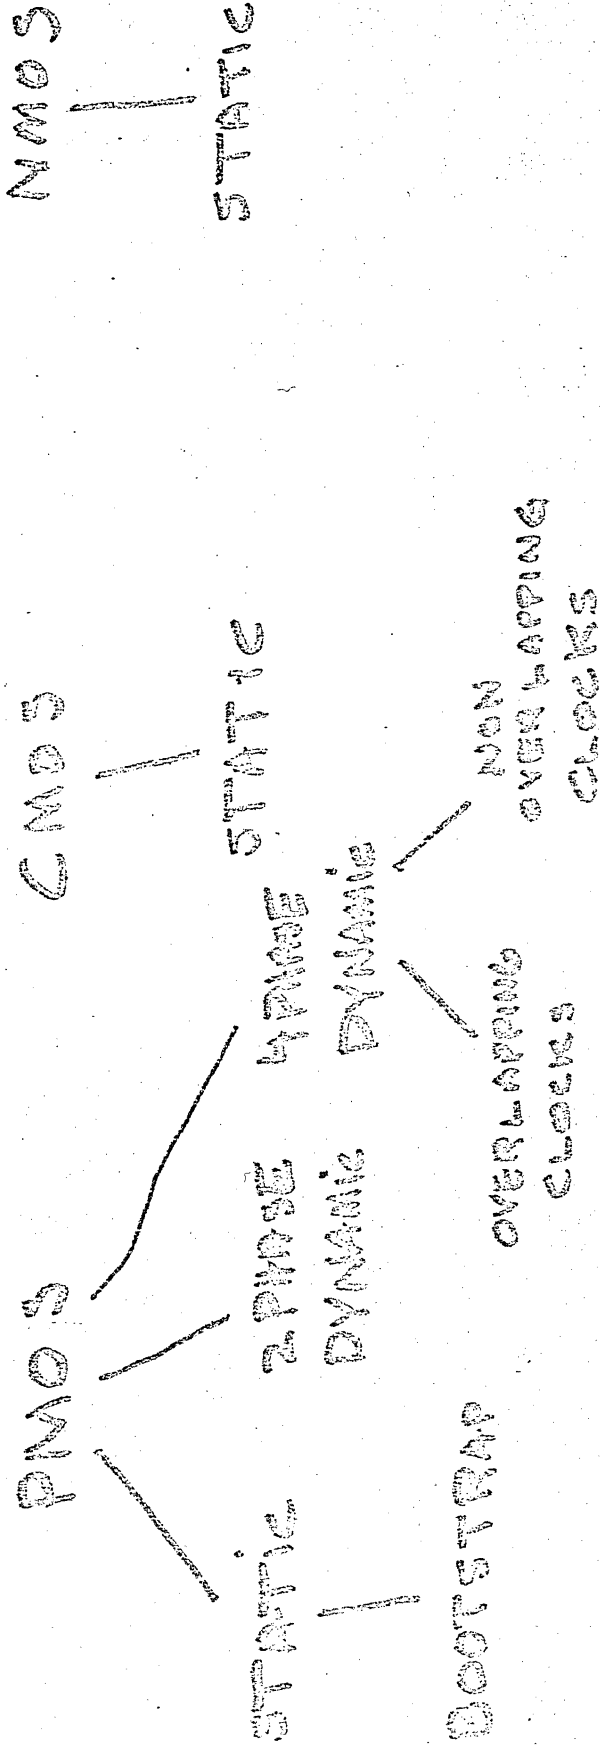 PMOS
CMOS
NMOS
STATIC
2 PHASE
DYNAMIC
4 PHASE
DYNAMIC
STATIC
STATIC
BOOTSTRAP
OVERLAPPING
CLOCKS
NON
OVERLAPPING
CLOCKS